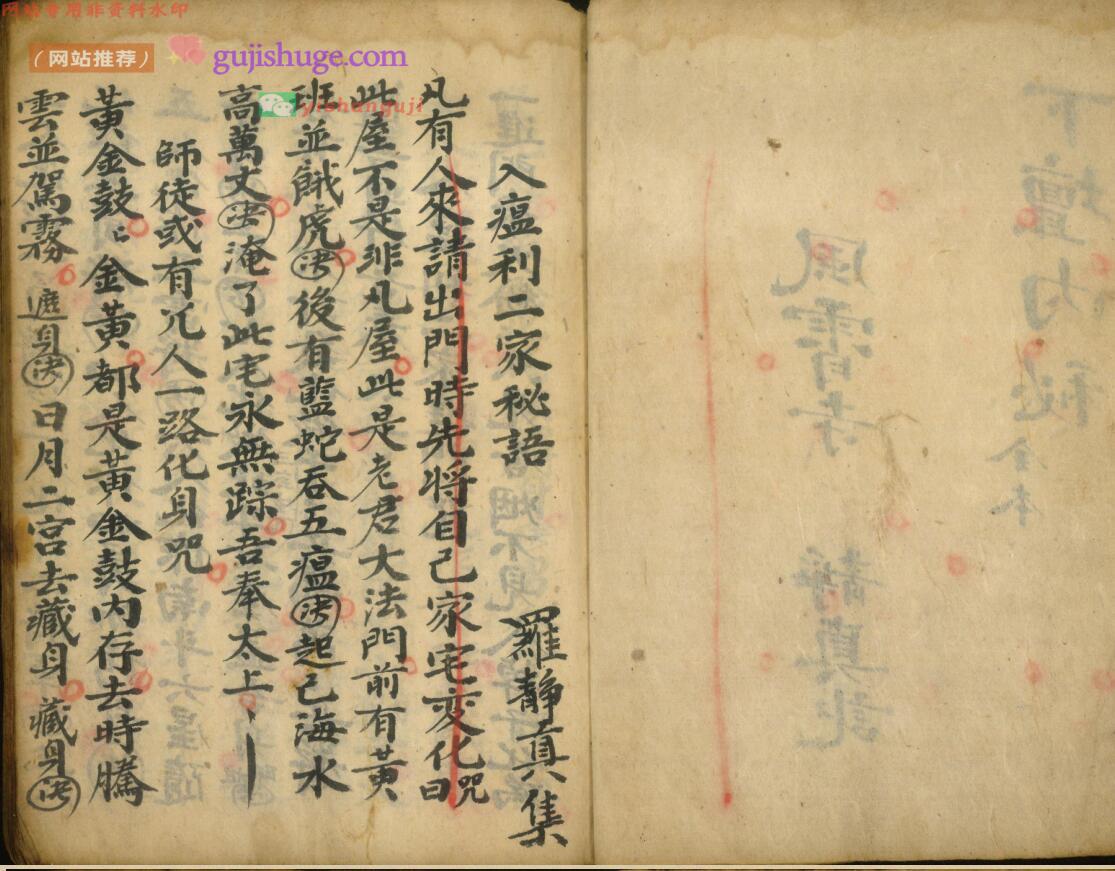 网站专用非资料水印
（网站推荐）
gujishuge.com
yishunguji
入瘟利二家秘語 羅靜真集
凡有人來請出門時先將自己家宅变化咒曰
此屋不是非凡屋此是老君大法門前有黃
班並餓虎决後有藍蛇吞五瘟决起己海水
高萬丈决淹了此宅永無踪吾奉太上
師徒或有凡人一路化身咒
黃金鼓々金黃都是黃金鼓內存去時騰
雲並駕霧遮身决日月二宫去藏身藏身决